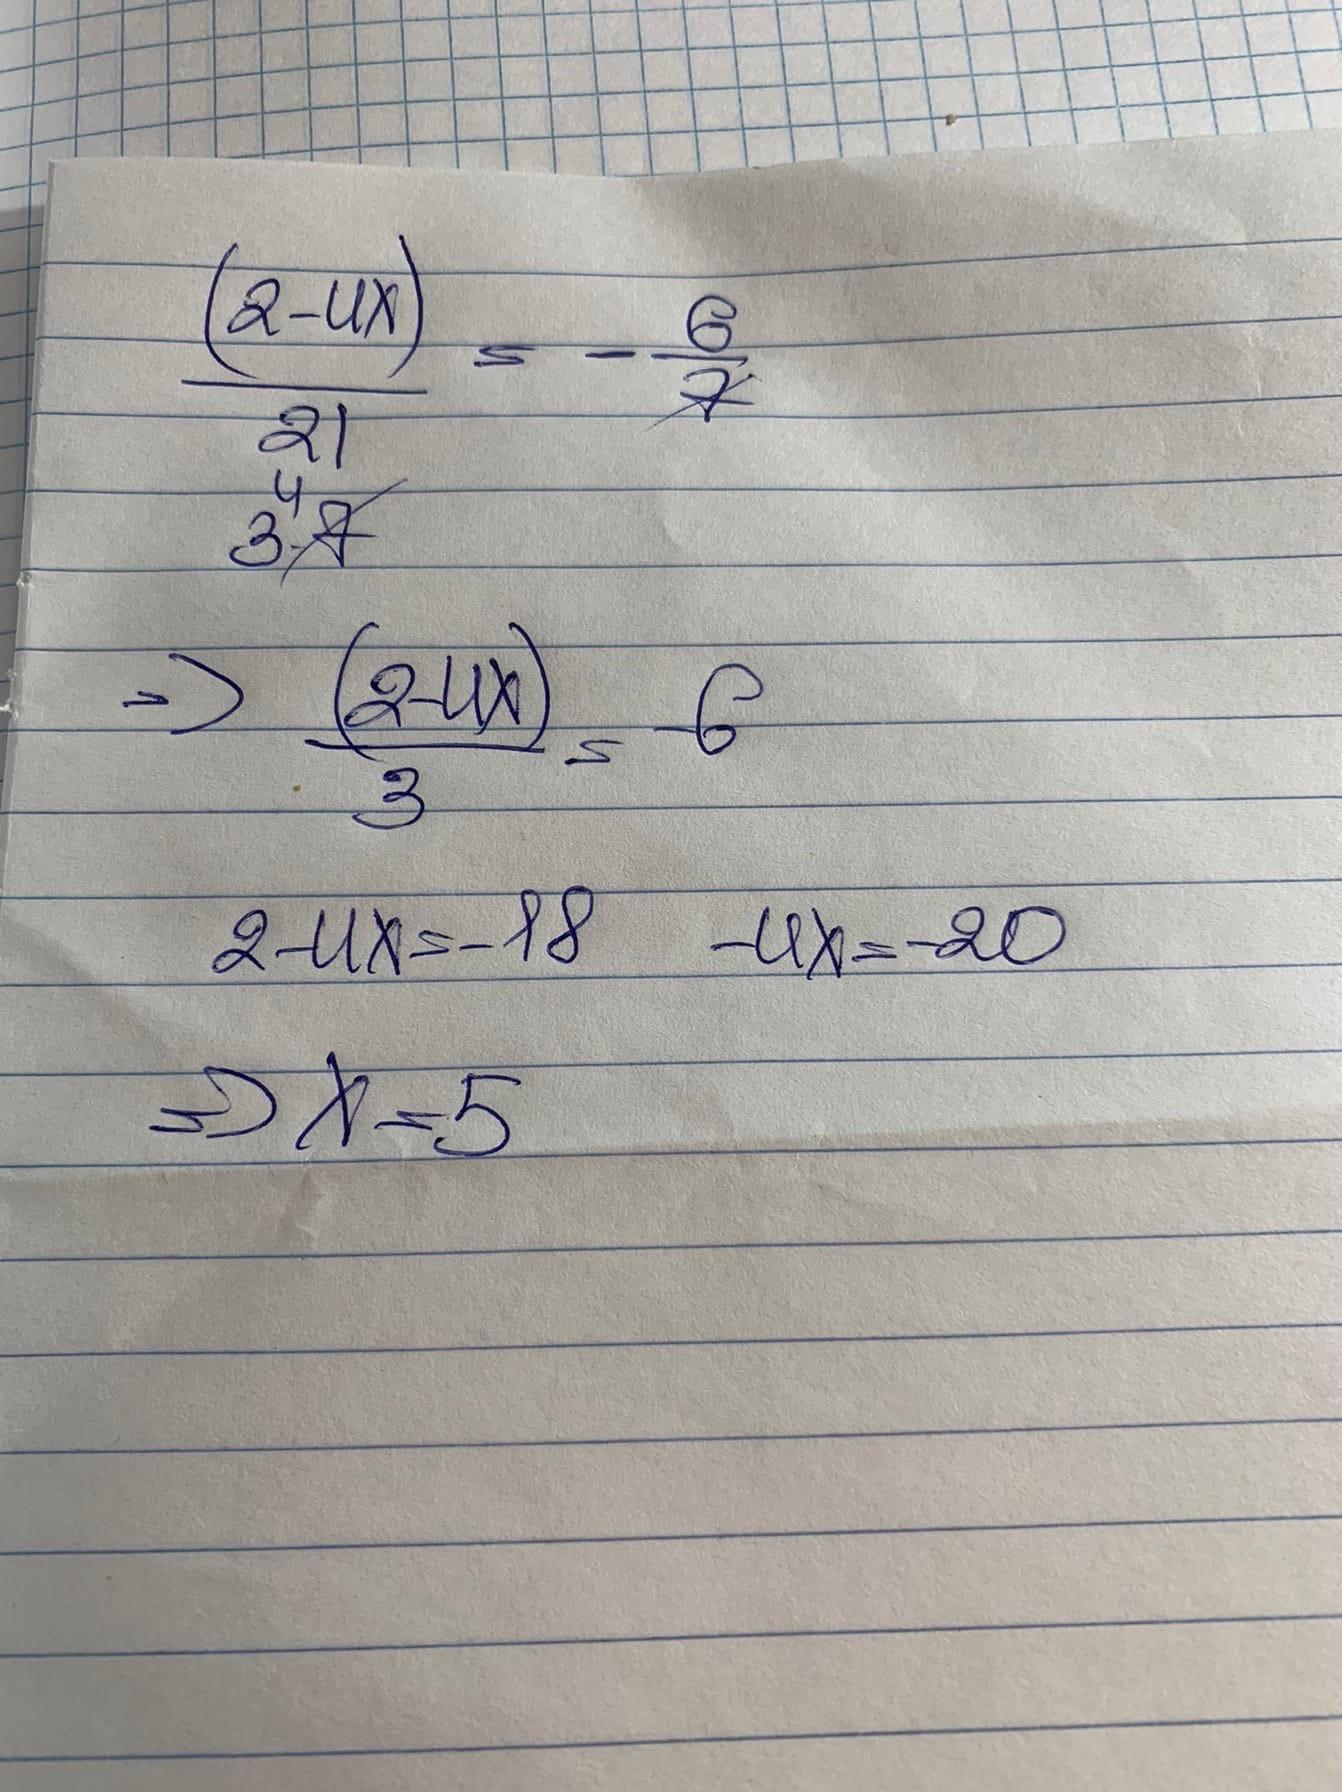 (2-4x)/21 = - 6/7
4
3·7
=> (2-4x)/3 = -6
2-4x=-18 -4x=-20
=> x=5